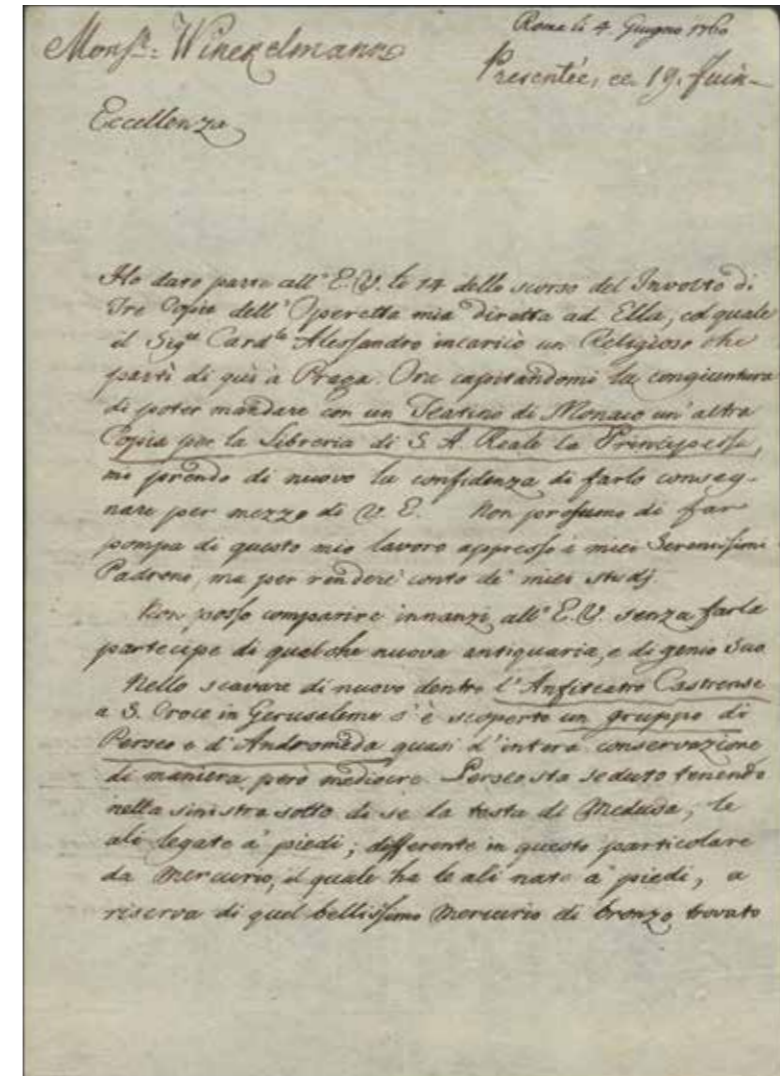 Roma li 4. Giugno 1760
Monsr: Winckelmann
Presentée, ce 19. Juin
Eccellenza
Ho dato parte all' E.V. li 14 dello scorso del Involto di
Tre Copie dell' Operetta mia diretta ad Ella, col quale
il Sigre Cardle Alessandro incaricò un Religioso che
partì di quì à Praga. Ora capitandomi la congiuntura
di poter mandare con un Teatino di Monaco un' altra
Copia per la Libreria di S. A. Reale la Principessa,
mi prendo di nuovo la confidenza di farlo conseg-
nare per mezzo di V. E. Non presumo di far
pompa di questo mio lavoro appresso i miei Serenissimi
Padroni, ma per render conto de' miei studj.
Non posso comparire innanzi all' E.V. senza farla
partecipe di qualche nuova antiquaria, e di genio Suo
Nello scavare di nuovo dentro l'Anfiteatro Castrense
a S. Croce in Gerusalemme s'è scoperto un gruppo di
Perseo e d'Andromeda quasi d'intera conservazione
di maniera però mediocre. Perseo sta seduto tenendo
nella sinistra sotto di se la testa di Medusa, le
ali legate a' piedi; differente in questo particolare
da Mercurio, il quale ha le ali nate a' piedi, a
riserva di quel bellissimo Mercurio di bronzo trovato